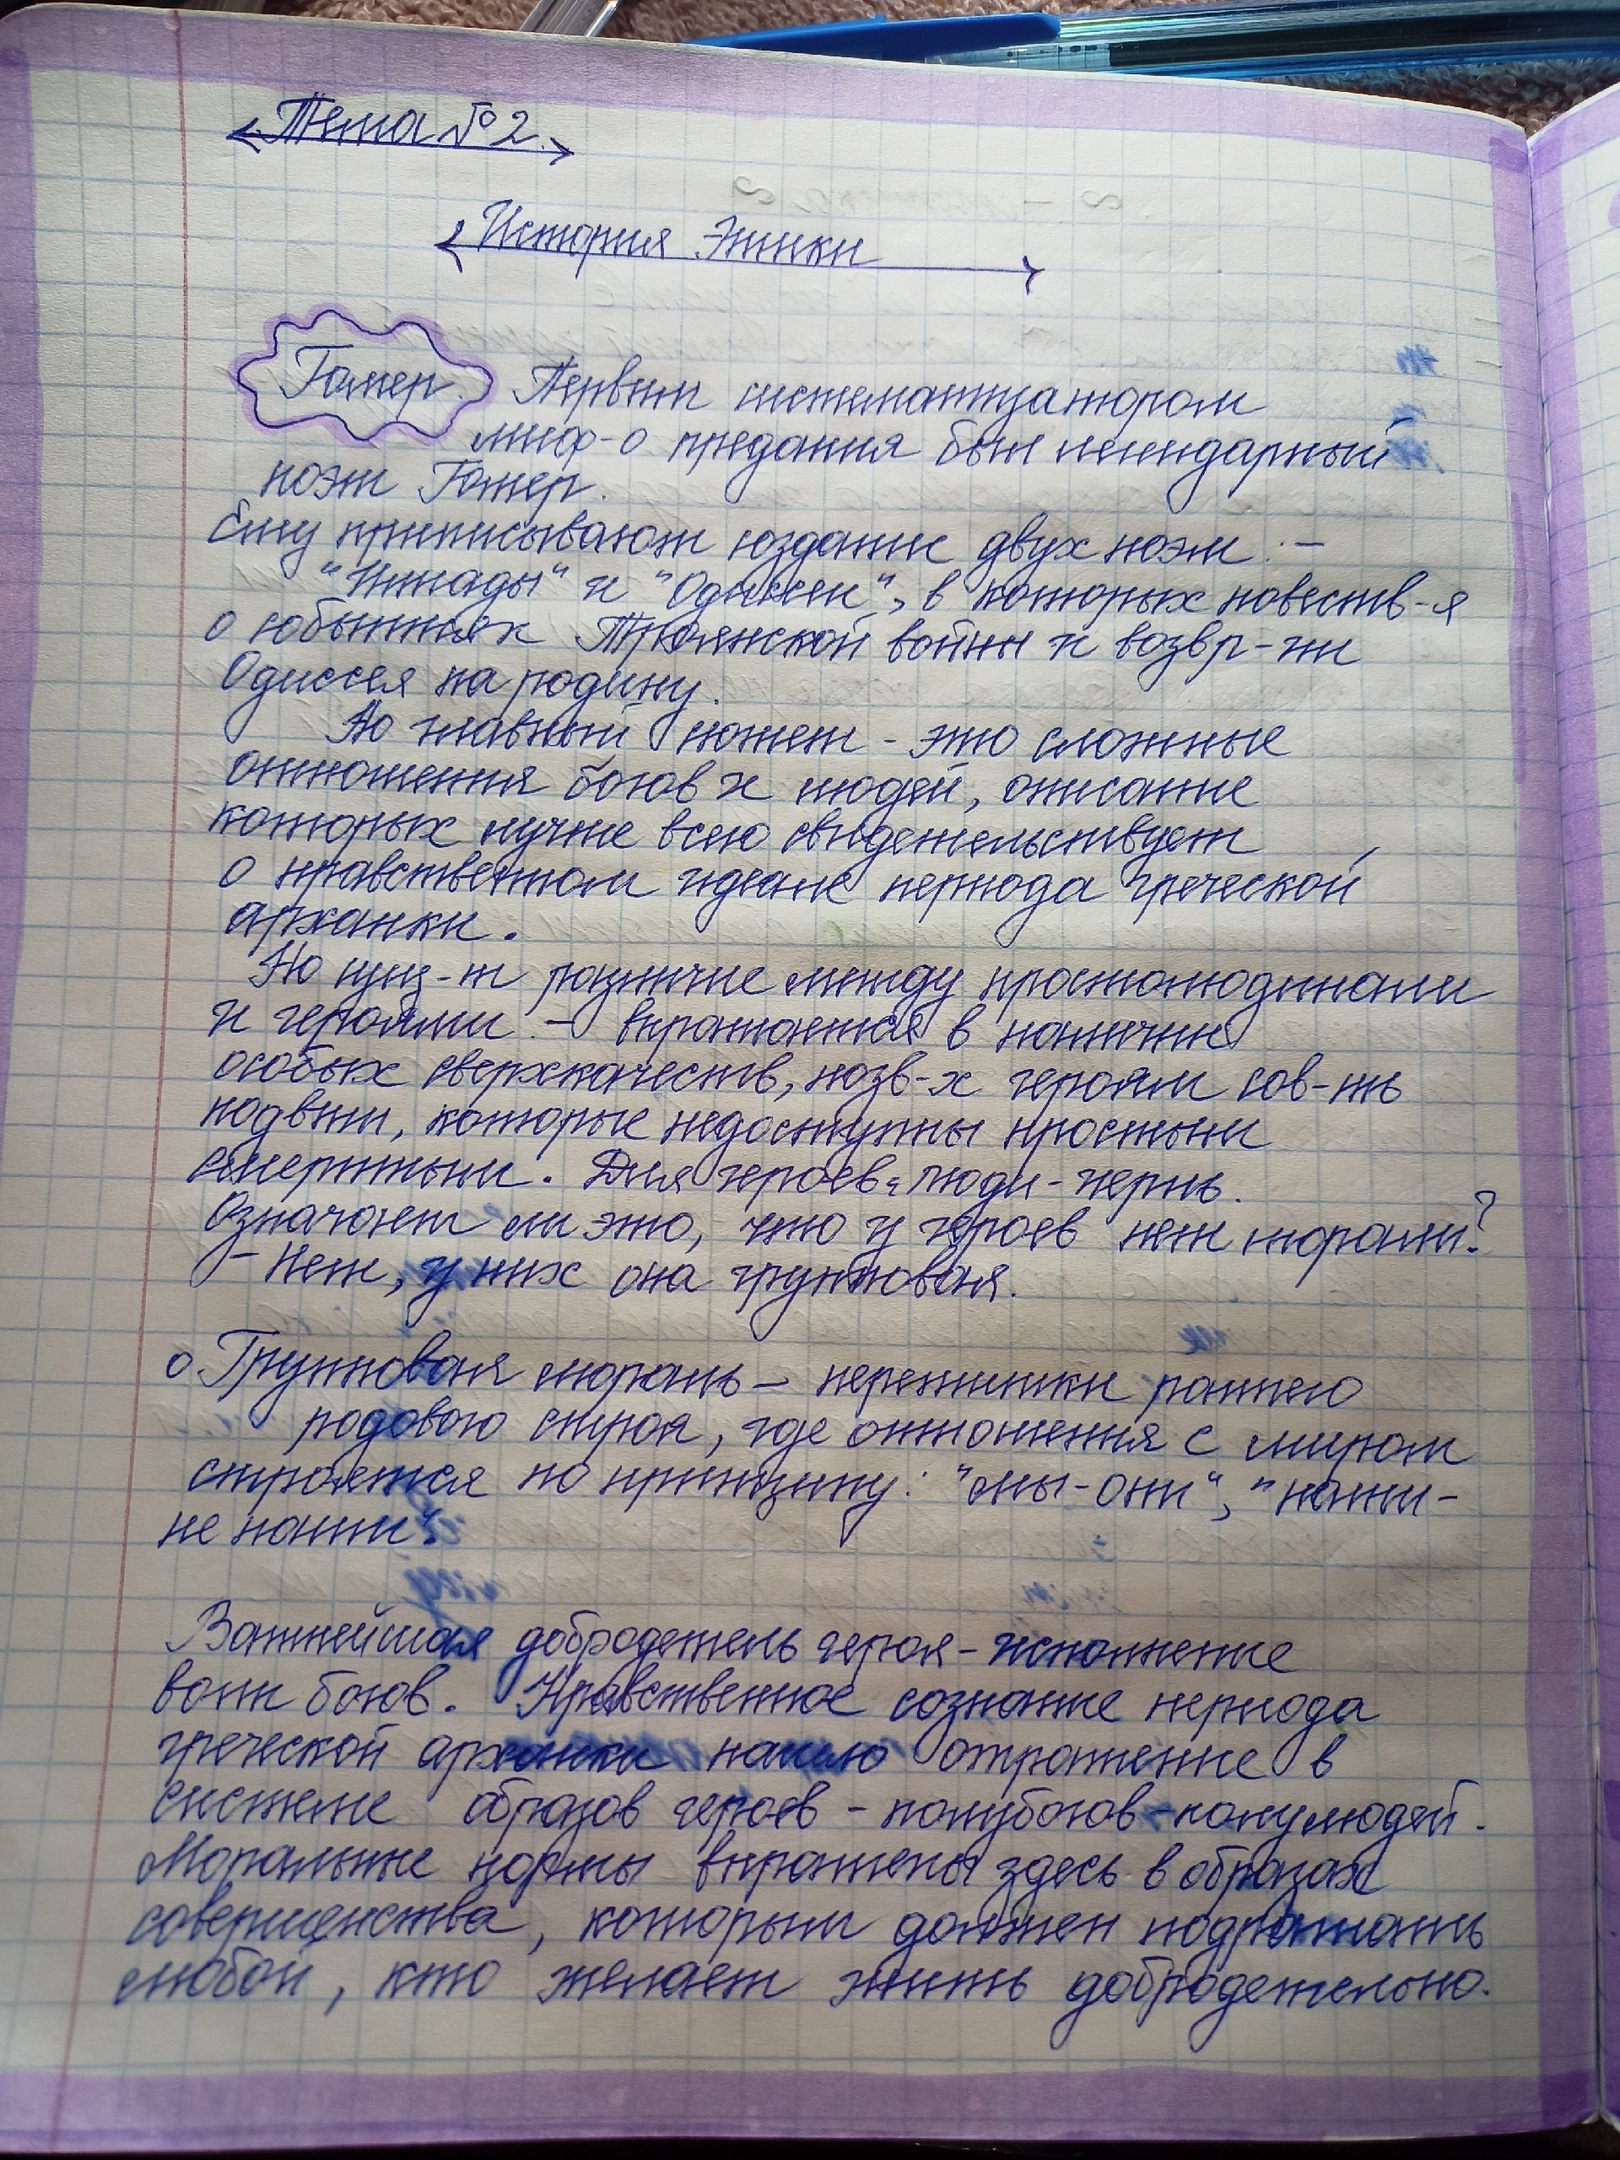 Тема №2.
История Этики
Гомер. Первым систематизатором
миф-о предания был легендарный
поэт Гомер.
Ему приписывают создание двух поэм: -
"Илиады" и "Одиссеи", в которых повеств-я
о событиях Троянской войны и возвр-ии
Одиссея на родину.
Но главный сюжет - это сложные
отношения богов и людей, описание
которых лучше всего свидетельствует
о нравственном идеале периода греческой
архаики.
Но сущ-т различие между простолюдинами
и героями - выражается в наличии
особых сверхкачеств, позв-х героям сов-ть
подвиги, которые недоступны простым
смертным. Для героев люди - чернь.
Означает ли это, что у героев нет морали?
- Нет, у них она групповая.
о Групповая мораль - пережитки раннего
родового строя, где отношения с миром
строятся по принципу: "мы-они", "наши-
не наши".
Важнейшая добродетель героя - исполнение
воли богов. Нравственное сознание периода
греческой архаики нашло отражение в
системе образов героев - полубогов-полулюдей.
Моральные нормы выражены здесь в образах
совершенства, которым должен подражать
любой, кто желает жить добродетельно.